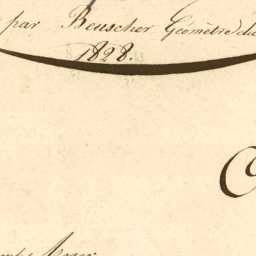 par Beuscher Géomètre du
1828.
C